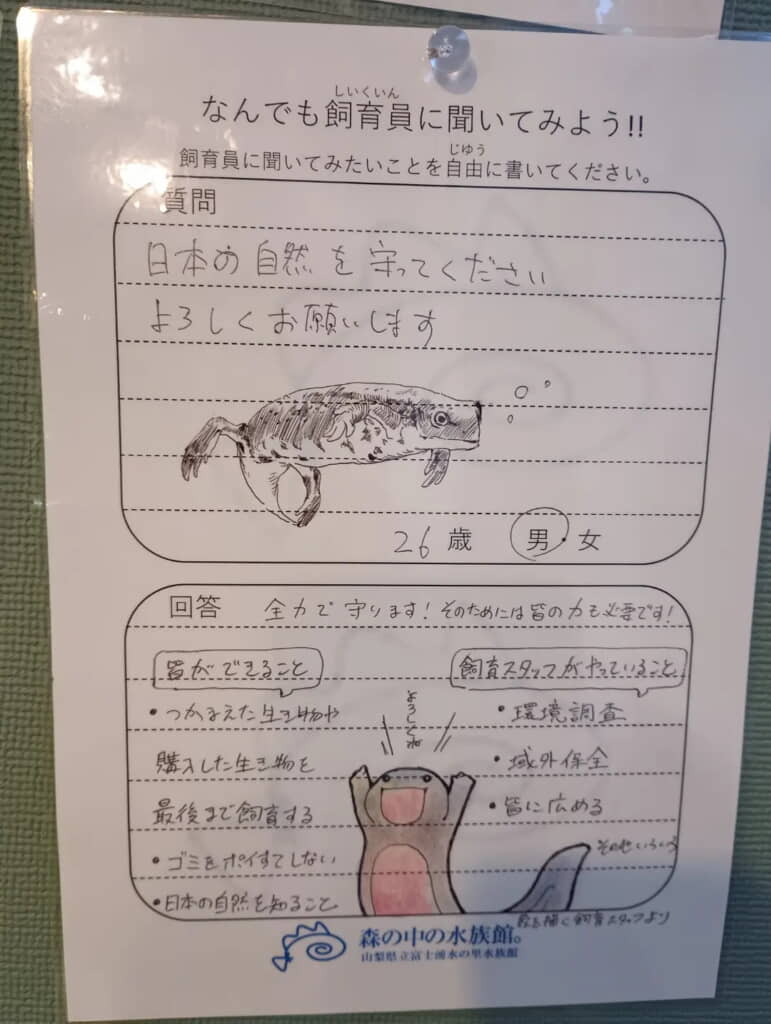 しいくいん
なんでも飼育員に聞いてみよう!!
じゆう
飼育員に聞いてみたいことを自由に書いてください。
質問
日本の自然を守ってください
よろしくお願いします
26歳 男・女
回答 全力で守ります!そのためには皆の力も必要です!
皆ができること
・つかまえた生き物や
購入した生き物を
最後まで飼育する
・ゴミをポイすてしない
・日本の自然を知ること
よろしくね
飼育スタッフがやっていること
・環境調査
・域外保全
・皆に広める
その他いろいろ
絵を描く飼育スタッフより
森の中の水族館。
山梨県立富士湧水の里水族館